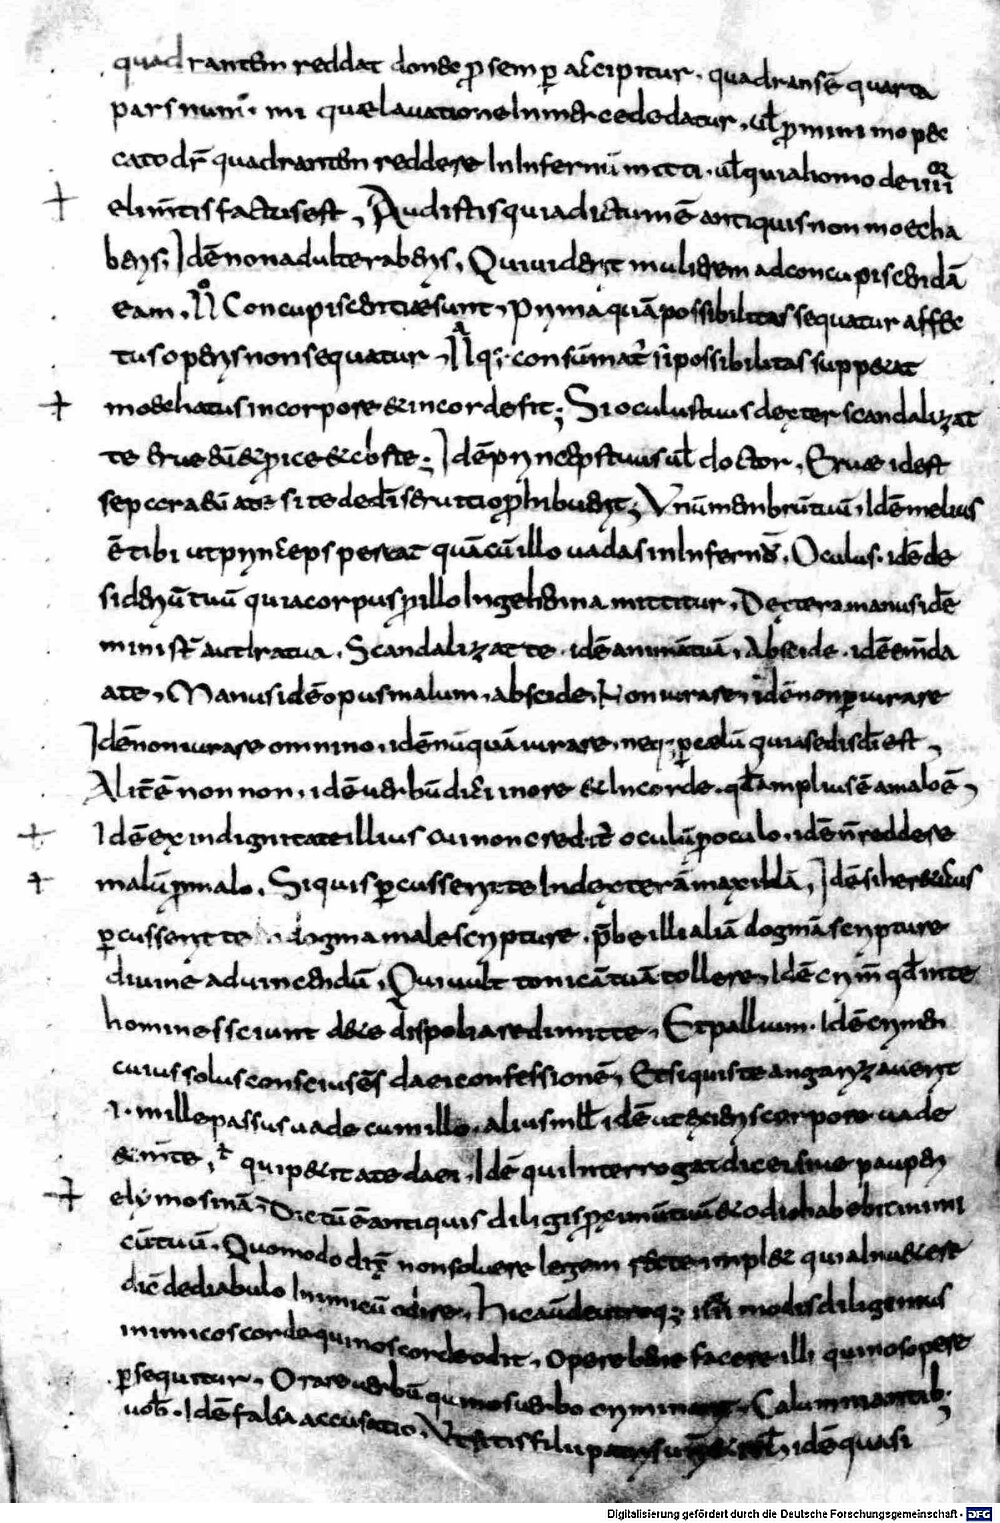 quadrantem reddat donec ꝓ semꝑ accipitur · quadrans ē quarta
pars num̄ · IIII quae lauatione in mercede datur , uł ꝓ minimo pec
cato dr̄ quadrantem reddere In Infernū mitti · uł quia homo de IIII
elim̄tis factus est , Audistis quia dictum ē antiquis non moecha
beris , Idē non adulteraberis , Qui uiderit mulierem ad concupiscendā
eam , Concupiscentiae sunt , Prima quā possibilitas sequatur affec
tus operis non sequatur , consūmat si possibilitas suppetat
moechatus in corpore & in corde fit ; Si oculus tuus dexter scandalizat
te erue eū & ꝓice Idē princeps tuus uł doctor , Eruae id est
sepera eū a te si te dedi seruitio ꝓhibuerit ; Vnū menbrū tuū , Idē melius
ē tibi ut princeps pereat quā cū illo uadas in Infernū , Oculus · idē de
siderium tuū quia corpus ꝓ illo In gehenna mittitur , Dextera manus idē
minist̄ aut Scandalizat te · idē animā tuā , Abscide · idē em̄da
a te , Manus idē opus malum , abscide , Non iurare , idē non ꝑiurare
Idē non iurare omnino , idē nūquā iurare , neq; ꝑ caelū quia sedis di est ,
Alit̄ ē non non · idē uerbū dici in ore & In corde · qđ amplius ē a malo ē ,
Idē ex indignitate illius cui non credit̄ oculū ꝓ oculo · idē n̄ reddere
malū ꝓ malo , Si quis ꝑcusserit te In dextera maxillā , Idē si hereticus
ꝑcusserit te dogma male scripture · p̄be illi aliā dogmā scripture
diuine ad uincendū , Qui uult tonicā tuā tollere , Idē crim̄ qđ in te
homines sciunt de te dispoliare dimitte , Et pallium · Idē crimen
cuius solus conscius ēs da ei confessionē , Et si quis te angarizauerit
mille passus uade cum illo · alius mill idē ut corpore uade
& m̄te , qui petit a te da ei , Idē qui Interrogat dic ei siue pauperi
elymosinā , Dictū ē antiquis diligis ꝓximū tuū & odio habebis inimi
cū tuū , Quomodo dr̄ non soluere legem sed implere quia
dic̄ de diabulo Inimicū odire , Hic modis diligemus
inimicos corde qui nos corde odit , Opere bene facere illi qui nos opere
ꝑsequitur , Orare uerbū qui nos uerbo Calumniantib;
uob̄ · Idē falsa accusatio , Vt sitis filii patris idē quasi